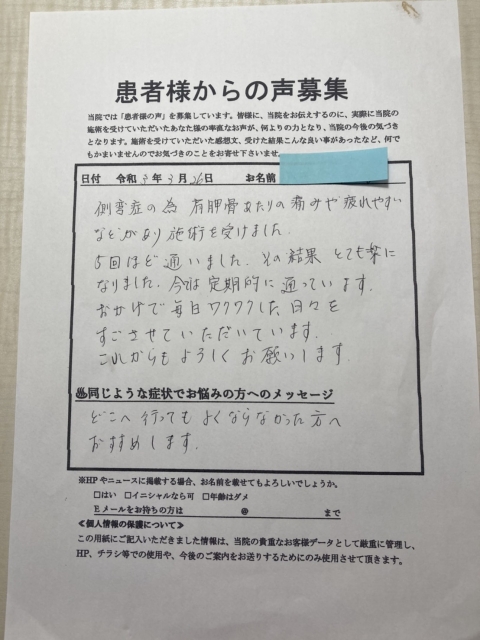 患者様からの声募集
当院では「患者様の声」を募集しています。皆様に、当院をお伝えするのに、実際に当院の
施術を受けていただいたあなた様の率直なお声が、何よりの力となり、当院の今後の気づき
となります。施術を受けていただいた感想文、受けた結果こんな良い事があったなど、何で
もかまいませんのでお気づきのことをお寄せ下さいませ。
日付 令和3年3月26日 お名前
側弯症の為 右肩甲骨あたりの痛みや疲れやすい
などがあり施術を受けました。
5回ほど通いました。その結果 とても楽に
なりました。今は定期的に通っています。
おかげで毎日ワクワクした日々を
すごさせていただいています。
これからもよろしくお願いします。
♨同じような症状でお悩みの方へのメッセージ
どこへ行ってもよくならなかった方へ
おすすめします。
※HPやニュースに掲載する場合、お名前を載せてもよろしいでしょうか。
□はい □イニシャルなら可 □年齢はダメ
Eメールをお持ちの方は @ まで
≪個人情報の保護について≫
この用紙にご記入いただきました情報は、当院の貴重なお客様データとして厳重に管理し、
HP、チラシ等での使用や、今後のご案内をお送りするためにのみ使用させて頂きます。